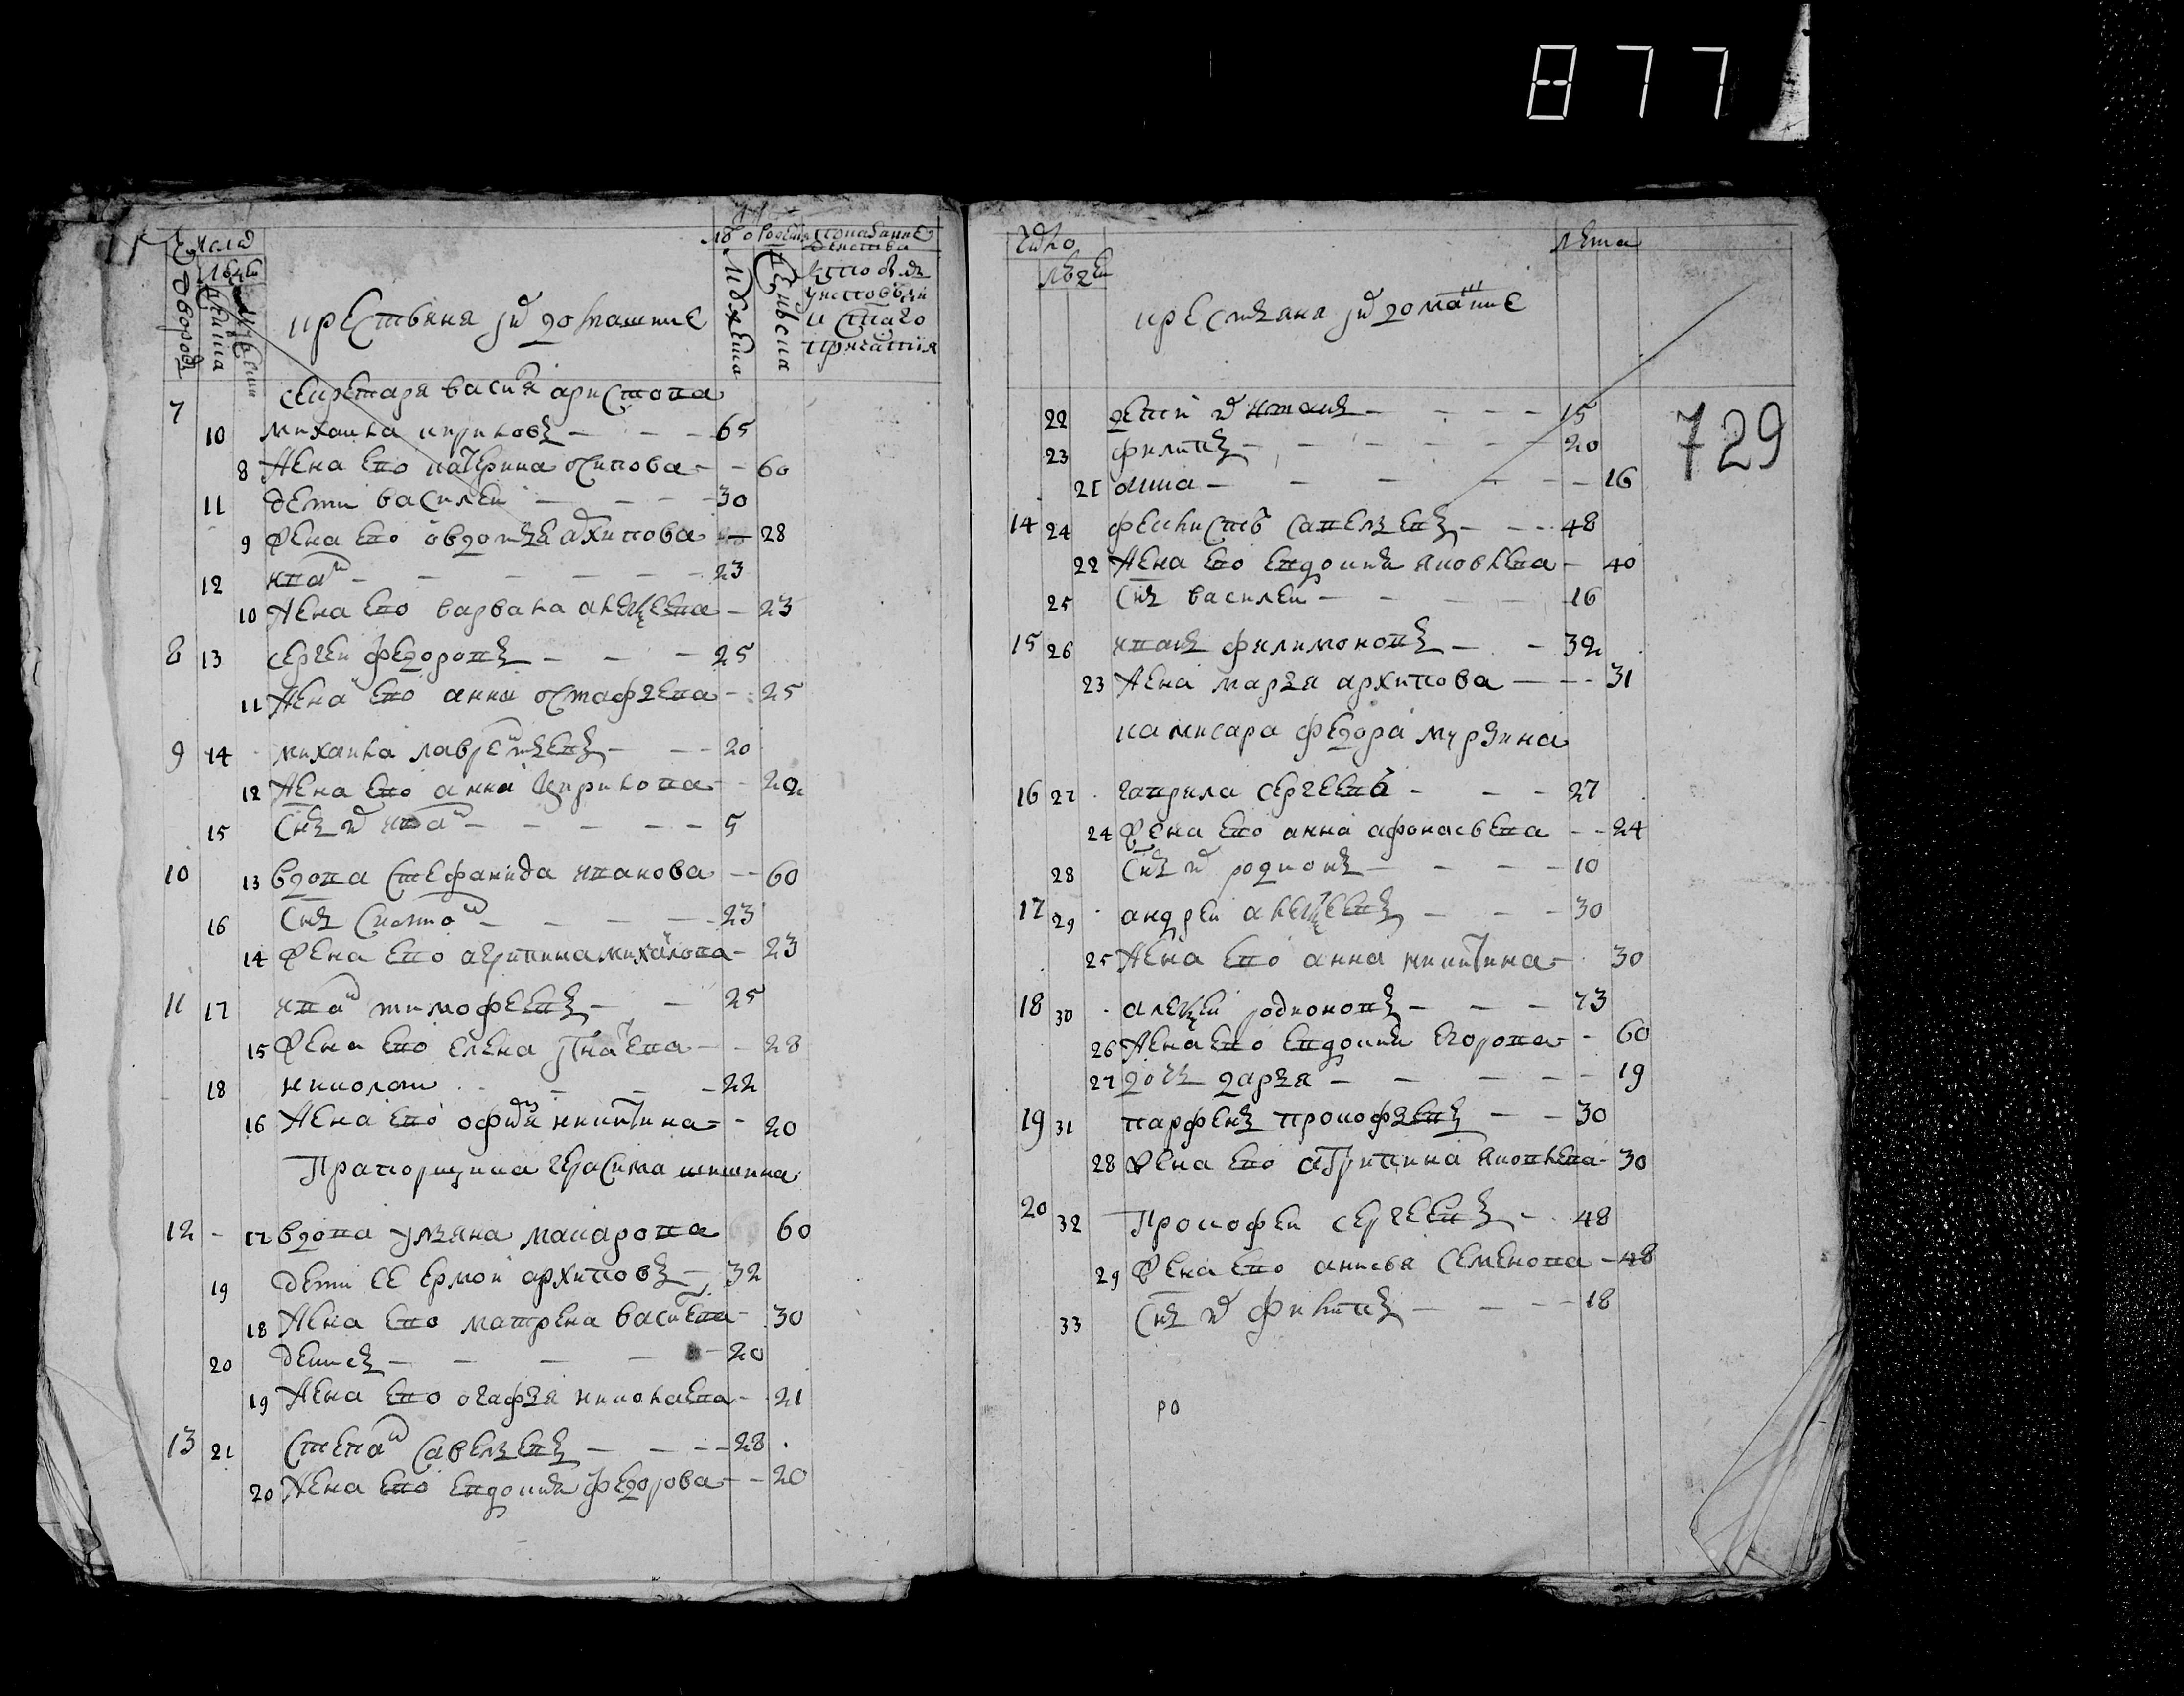 877
Числа
людей
дворов
мужеска
женска
крестьяня и домашние
лета
мужеска
женска
показание
действа
кто был
у исповеди
и святаго
причастия
секретаря василя аристова
7 10 михаила кирилов 65
8 жена ево катерина осипова 60
11 дети василей 30
9 жена ево овдотья архипова 28
12 иван 23
10 жена ево варвара алексеева 23
8 13 сергей федоров 25
11 жена ево анна остафьева 25
9 14 михаила лаврентьев 20
12 жена ево анна кирилова 22
15 сын их иван 5
10 13 вдова стефанида иванова 60
16 сын 23
14 жена ево агрипина михайлова 23
11 17 иван тимофеев 25
15 жена ево елена игнатева 28
18 николай 22
16 жена ево офимя никитина 20
Прапорщика герасима шишкина
12 17 вдова ульяна макарова 60
19 дети ее ермол архипов 32
18 жена ево матрена василева 30
20 денис 20
19 жена ево огафья николаева 21
13 21 степан савельев 28
20 жена ево евдокия федорова 20
число
людей
крестьяна и домашние
лета
729
22 дети их иван 15
23 филип 20
21 анна 16
14 24 феклист савельев 48
22 жена ево евдокия яковлева 40
25 сын василей 16
15 26 иван филимонов 32
23 жена марья архипова 31
камисара федора мурзина
16 27 гаврила сергеев 27
24 жена ево анна афонасьева 24
28 сын их родион 10
17 29 андрей алексеев 30
25 жена ево анна никитина 30
18 30 алексей родионов 73
26 жена ево евдокия егорова 60
27 дочь дарья 19
19 31 парфен прокофьев 30
28 жена ево агрипина яковлева 30
20 32 Прокофей сергеев 48
29 жена ево анисья семенова 48
33 сын их филип 18
ро